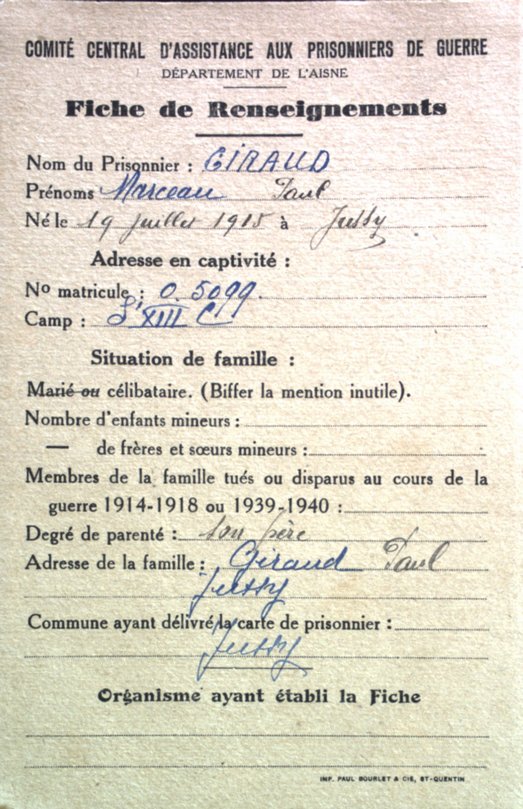 COMITÉ CENTRAL D'ASSISTANCE AUX PRISONNIERS DE GUERRE
DÉPARTEMENT DE L'AISNE
Fiche de Renseignements
Nom du Prisonnier : GIRAUD
Prénoms Marceau Paul
Né le 19 juillet 1915 à Jussy
Adresse en captivité :
No matricule : 0.5099.
Camp : XIII C
Situation de famille :
Marié ou célibataire. (Biffer la mention inutile).
Nombre d'enfants mineurs :
— de frères et sœurs mineurs :
Membres de la famille tués ou disparus au cours de la
guerre 1914-1918 ou 1939-1940 :
Degré de parenté : son père
Adresse de la famille : Giraud Paul
Jussy
Commune ayant délivré la carte de prisonnier :
Jussy
Organisme ayant établi la Fiche
IMP. PAUL BOURLET & CIE, ST-QUENTIN